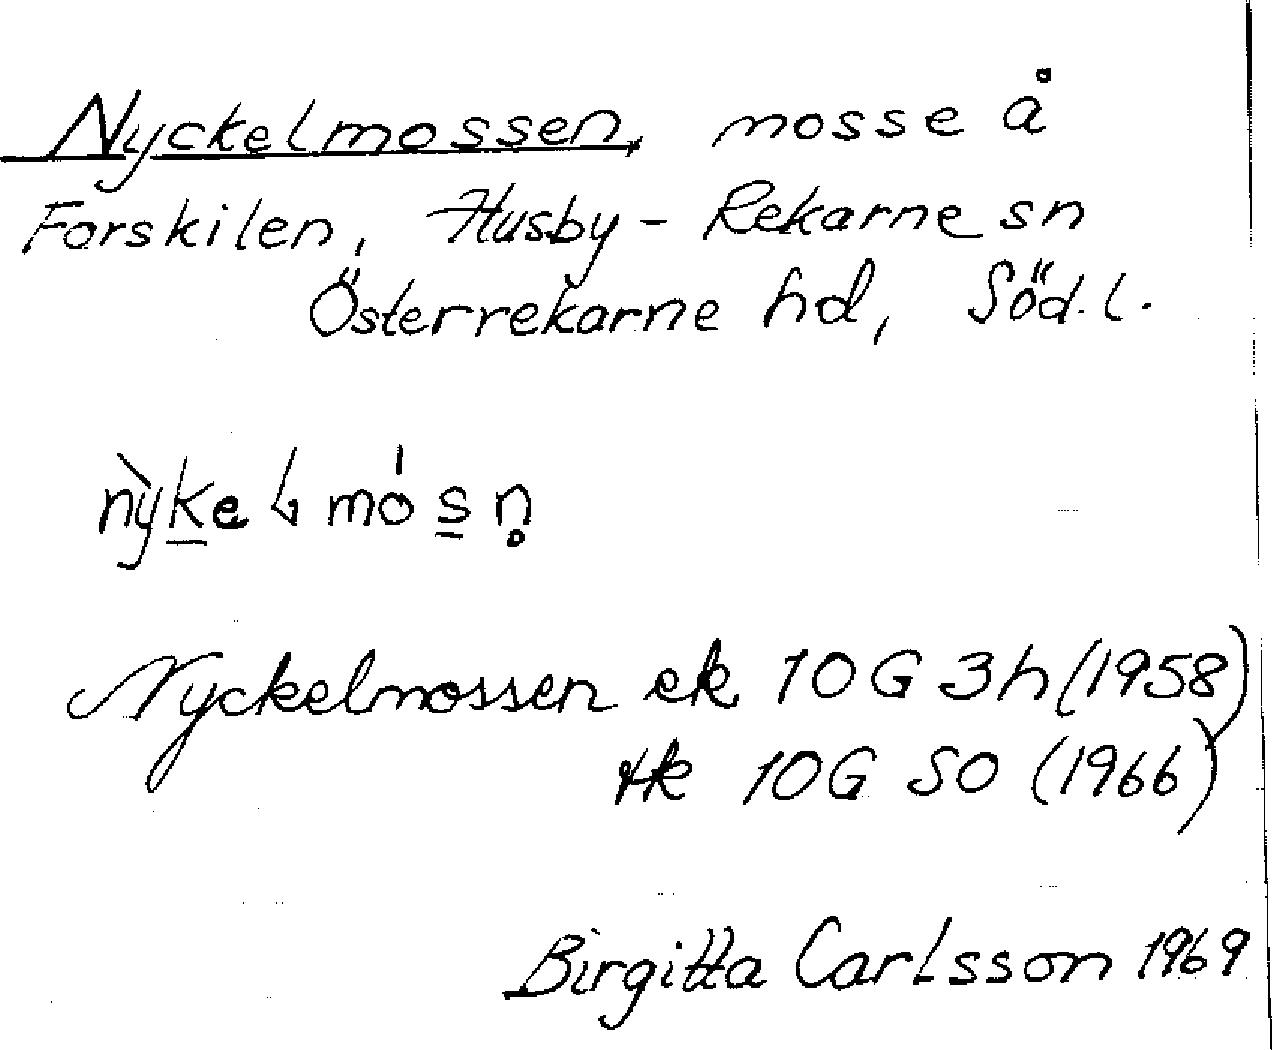 Nyckelmossen, mosse å
Forskilen, Husby-Rekarne sn
Österrekarne hd, Söd.l.
Nyckelmossen ek 10G 3h (1958)
tk 10G SO (1966)
Birgitta Carlsson 1969